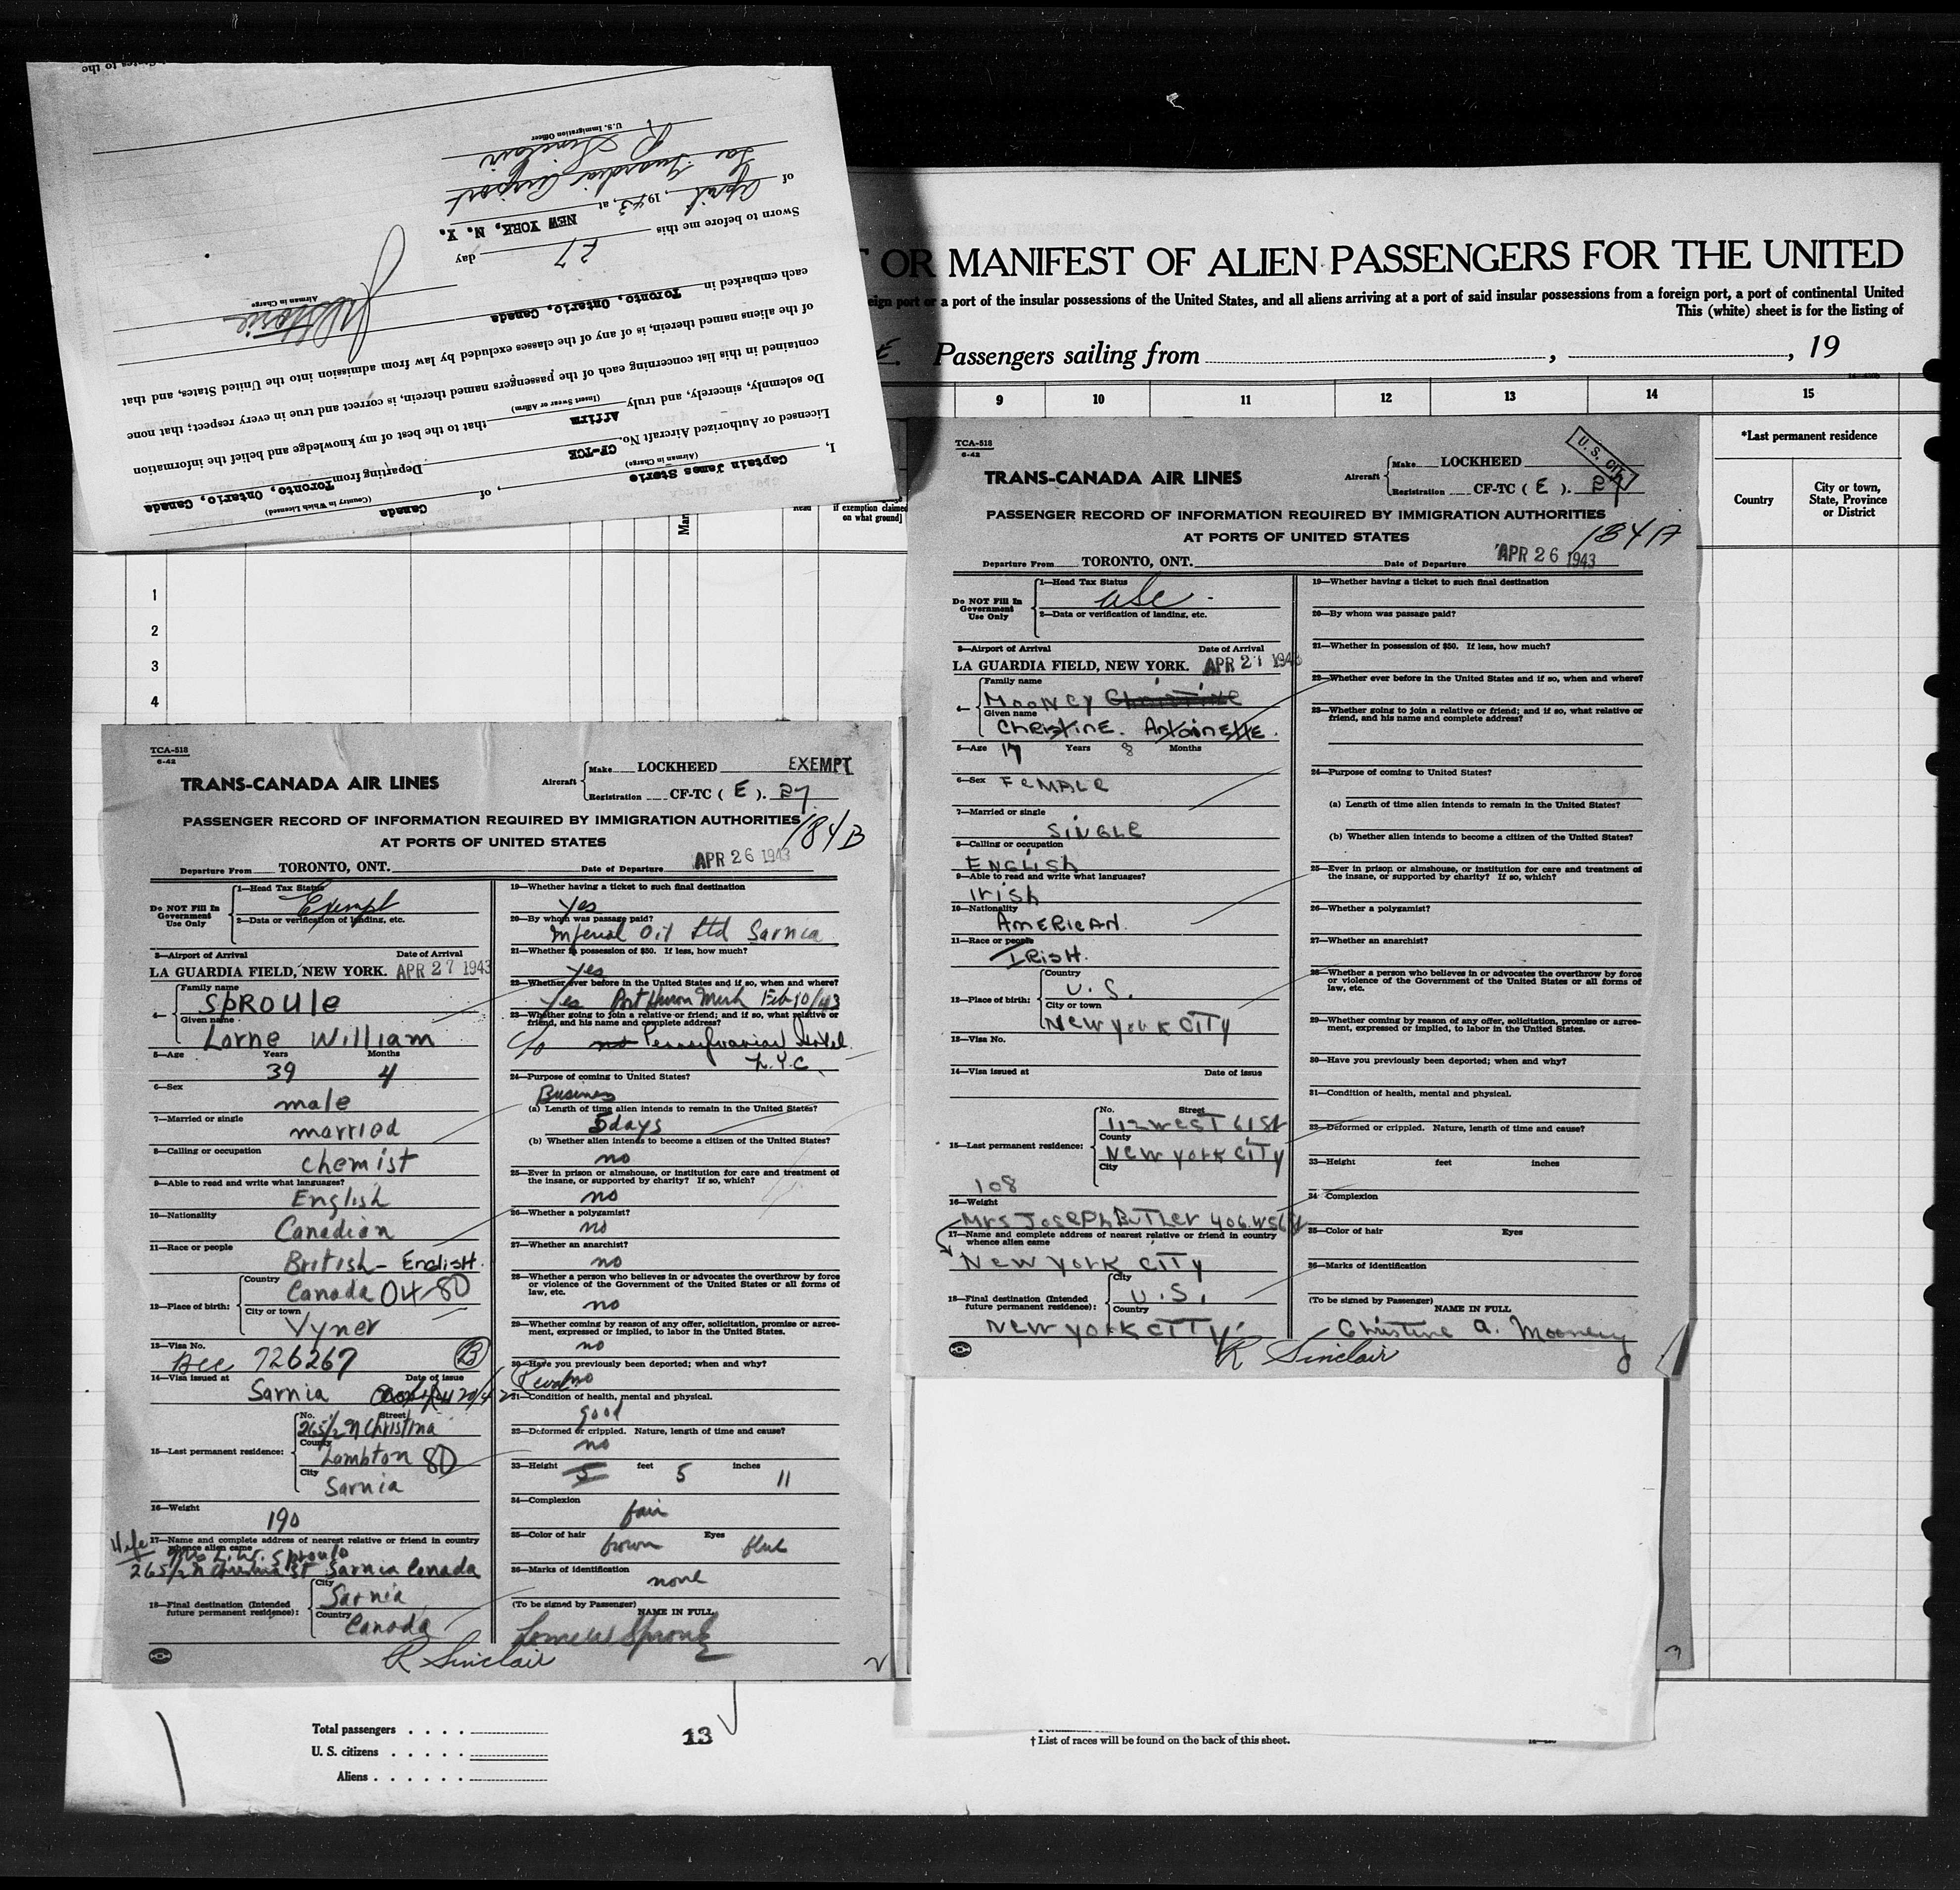 States to the
I, Captain James Storie, of Canada
(Airman in Charge) (Country in Which Licensed)
Licensed or Authorized Aircraft No. CF-TCE Departing from Toronto, Ontario, Canada
Do solemnly, sincerely, and truly Affirm that to the best of my knowledge and belief the information
(Insert Swear or Affirm)
contained in this list concerning each of the passengers named therein, is correct and true in every respect; that none
of the aliens named therein, is of any of the classes excluded by law from admission into the United States, and that
each embarked in Toronto, Ontario, Canada
JStorie
Airman in Charge
Sworn to before me this 27 day
of April, 1943, at NEW YORK, N. Y.
La Guardia Airport
R Sinclair
U.S. Immigration Officer
OR MANIFEST OF ALIEN PASSENGERS FOR THE UNITED
eign port or a port of the insular possessions of the United States, and all aliens arriving at a port of said insular possessions from a foreign port, a port of continental United
This (white) sheet is for the listing of
Passengers sailing from , , 19
9 10 11 12 13 14 15
*Last permanent residence
Country
City or town, State, Province or District
Read
if exemption claimed
on what ground]
1
2
3
4
TCA-518
6-42
TRANS-CANADA AIR LINES
Aircraft
Make LOCKHEED EXEMPT
Registration CF-TC ( E ). 27
PASSENGER RECORD OF INFORMATION REQUIRED BY IMMIGRATION AUTHORITIES
184B
AT PORTS OF UNITED STATES
Departure From TORONTO, ONT. Date of Departure APR 26 1943
Do NOT Fill In Government Use Only
1—Head Tax Status
Exempt
2—Data or verification of landing, etc.
3—Airport of Arrival Date of Arrival
LA GUARDIA FIELD, NEW YORK. APR 27 1943
4—
Family name
Sproule
Given name
Lorne William
5—Age Years Months
39 4
6—Sex
male
7—Married or single
married
8—Calling or occupation
chemist
9—Able to read and write what languages?
English
10—Nationality
Canadian
11—Race or people
British - English.
12—Place of birth:
Country
Canada 04-80
City or town
Vyner
13—Visa No.
Bcc 726267 B
14—Visa issued at Date of issue
Sarnia
15—Last permanent residence:
No. Street
265½ N Christina
County
Lambton 80
City
Sarnia
16—Weight
190
17—Name and complete address of nearest relative or friend in country whence alien came
Wife
Mrs L.W. Sproule
265½ N Christina St Sarnia Canada
18—Final destination (Intended future permanent residence):
City
Sarnia
Country
Canada
R Sinclair
19—Whether having a ticket to such final destination
Yes
20—By whom was passage paid?
Imperial Oil Ltd Sarnia
21—Whether in possession of $50. If less, how much?
Yes
22—Whether ever before in the United States and if so, when and where?
Yes Port Huron Mich Feb 10/43
23—Whether going to join a relative or friend; and if so, what relative or friend, and his name and complete address?
no Pennsylvanian Hotel
N.Y.C.
24—Purpose of coming to United States?
Business
(a) Length of time alien intends to remain in the United States?
5 days
(b) Whether alien intends to become a citizen of the United States?
no
25—Ever in prison or almshouse, or institution for care and treatment of the insane, or supported by charity? If so, which?
no
26—Whether a polygamist?
no
27—Whether an anarchist?
no
28—Whether a person who believes in or advocates the overthrow by force or violence of the Government of the United States or all forms of law, etc.
no
29—Whether coming by reason of any offer, solicitation, promise or agreement, expressed or implied, to labor in the United States.
no
30—Have you previously been deported; when and why?
no
31—Condition of health, mental and physical.
good
32—Deformed or crippled. Nature, length of time and cause?
no
33—Height 5 feet 5 inches 11
34—Complexion
fair
35—Color of hair Eyes
brown blue
36—Marks of identification
none
(To be signed by Passenger)
NAME IN FULL
Lorne W Sproule
2
TCA-518
6-42
TRANS-CANADA AIR LINES
Aircraft
Make LOCKHEED
U. S. CIT
Registration CF-TC ( E ). 27
PASSENGER RECORD OF INFORMATION REQUIRED BY IMMIGRATION AUTHORITIES
AT PORTS OF UNITED STATES
184A
Departure From TORONTO, ONT. Date of Departure APR 26 1943
Do NOT Fill In Government Use Only
1—Head Tax Status
USC
2—Data or verification of landing, etc.
3—Airport of Arrival Date of Arrival
LA GUARDIA FIELD, NEW YORK. APR 27 1943
4—
Family name
Mooney Christine
Given name
Christine. Antoinette.
5—Age 17 Years 8 Months
6—Sex Female
7—Married or single
Single
8—Calling or occupation
English
9—Able to read and write what languages?
Irish
10—Nationality
American.
11—Race or people
Irish.
12—Place of birth:
Country
U.S.
City or town
New York City
13—Visa No.
14—Visa issued at Date of issue
15—Last permanent residence:
No. Street
112 West 61 St
County
New York City
City
108
16—Weight
Mrs Joseph Butler 406.W56 St
17—Name and complete address of nearest relative or friend in country whence alien came
New York City
18—Final destination (Intended future permanent residence):
City
U.S.
Country
New York City.
19—Whether having a ticket to such final destination
20—By whom was passage paid?
21—Whether in possession of $50. If less, how much?
22—Whether ever before in the United States and if so, when and where?
23—Whether going to join a relative or friend; and if so, what relative or friend, and his name and complete address?
24—Purpose of coming to United States?
(a) Length of time alien intends to remain in the United States?
(b) Whether alien intends to become a citizen of the United States?
25—Ever in prison or almshouse, or institution for care and treatment of the insane, or supported by charity? If so, which?
26—Whether a polygamist?
27—Whether an anarchist?
28—Whether a person who believes in or advocates the overthrow by force or violence of the Government of the United States or all forms of law, etc.
29—Whether coming by reason of any offer, solicitation, promise or agreement, expressed or implied, to labor in the United States.
30—Have you previously been deported; when and why?
31—Condition of health, mental and physical.
32—Deformed or crippled. Nature, length of time and cause?
33—Height feet inches
34—Complexion
35—Color of hair Eyes
36—Marks of identification
(To be signed by Passenger)
NAME IN FULL
Christine A. Mooney
R Sinclair
3
Total passengers . . . .
U. S. citizens . . . . .
Aliens . . . . . .
13
† List of races will be found on the back of this sheet.